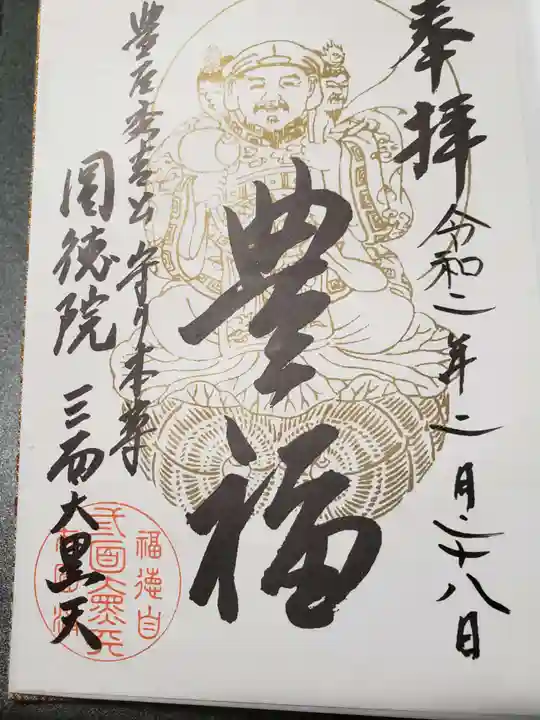 奉拝
令和二年二月二十八日
豊福
豊臣秀吉公守り本尊
圓徳院
三面大黒天
福徳自